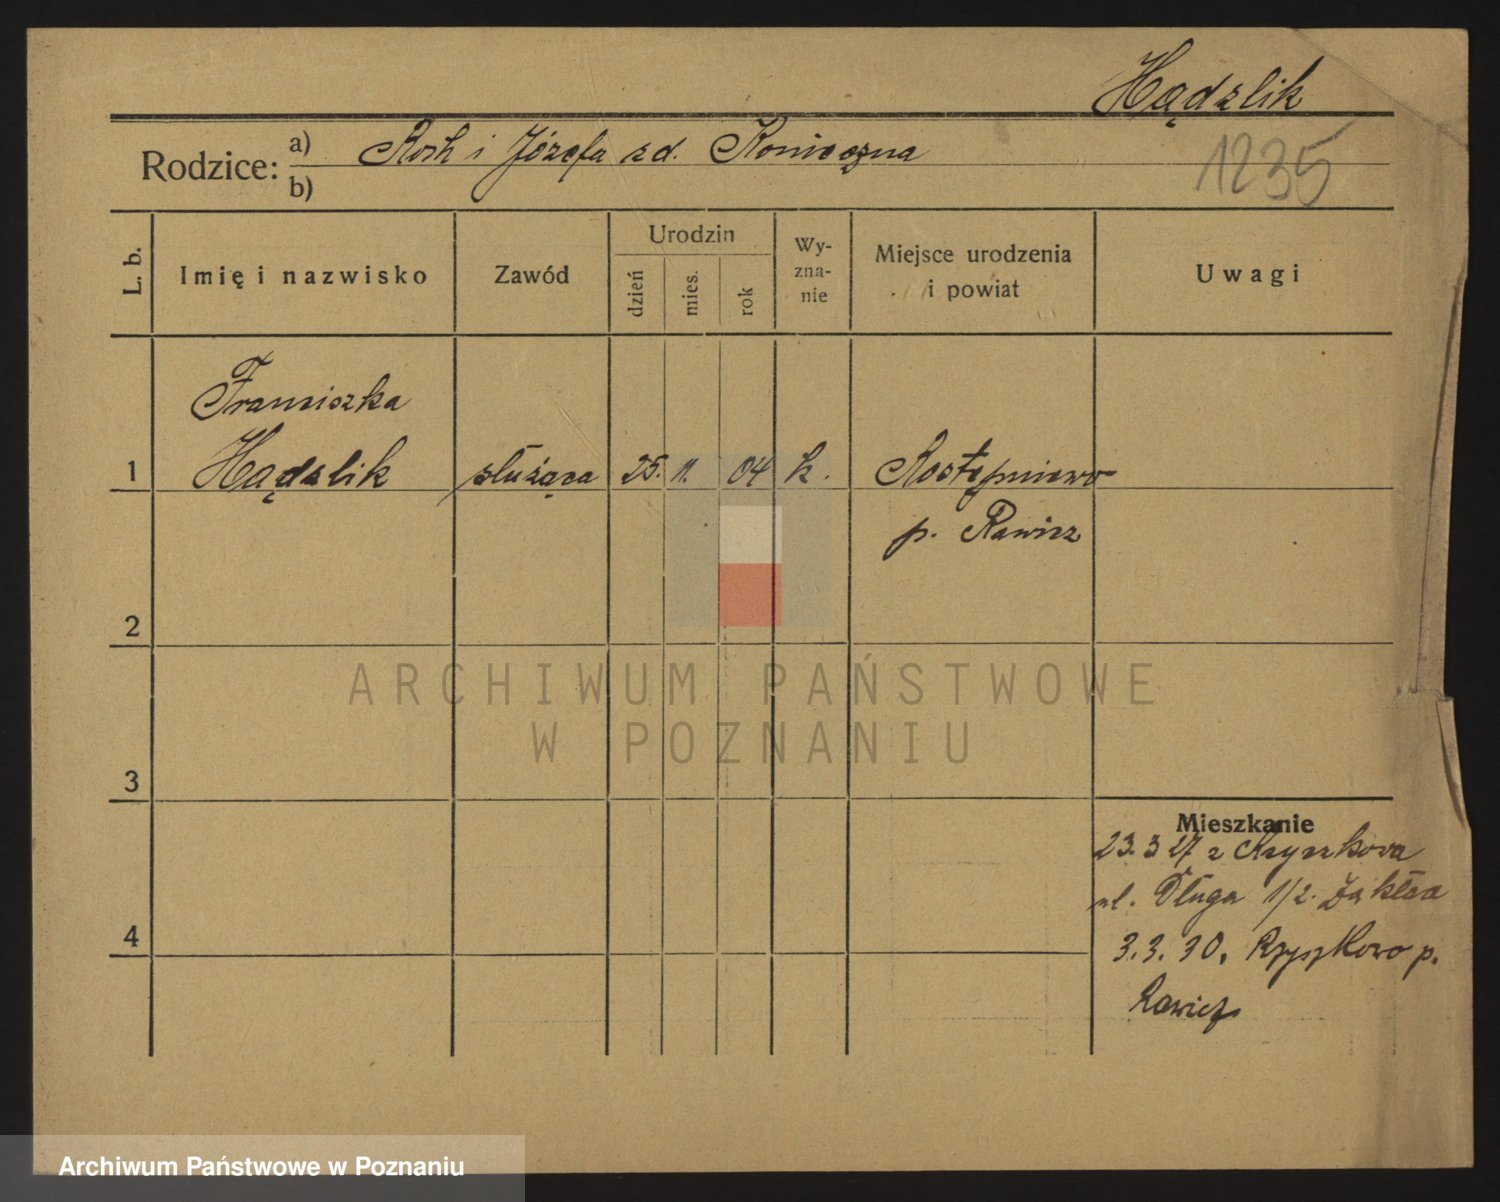 Hądzlik
1235
Rodzice: a) Roch i Józefa zd. Konieczna
b)
L. b.
Imię i nazwisko
Zawód
Urodzin
dzień
mies.
rok
Wy-
zna-
nie
Miejsce urodzenia
i powiat
Uwagi
Franciszka
1 Hądzlik służąca 25. 11. 04 k. Rostępniewo
p. Rawicz
2
3
4
Mieszkanie
23. 3 27 z
ul. Długa 1/2.
3. 3. 30. p.
Rawicz
ARCHIWUM PAŃSTWOWE
W POZNANIU
Archiwum Państwowe w Poznaniu